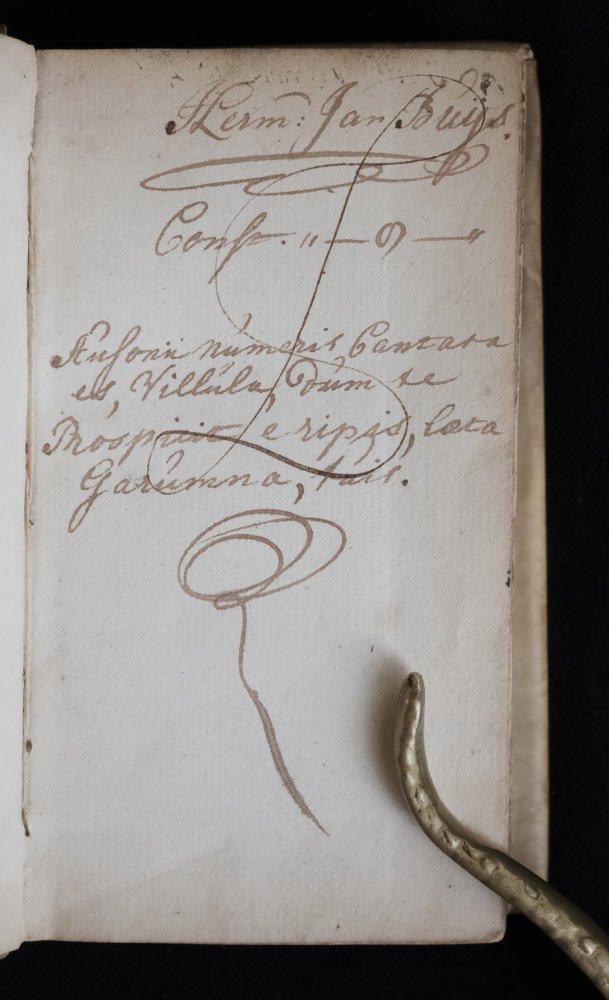 Herm: Jan Buijs.
Const. „ — 9 — „
Ausonii numeris Cantata
es, Villula, dum te
Prospicit e ripis, læta
Garumna, tuis.